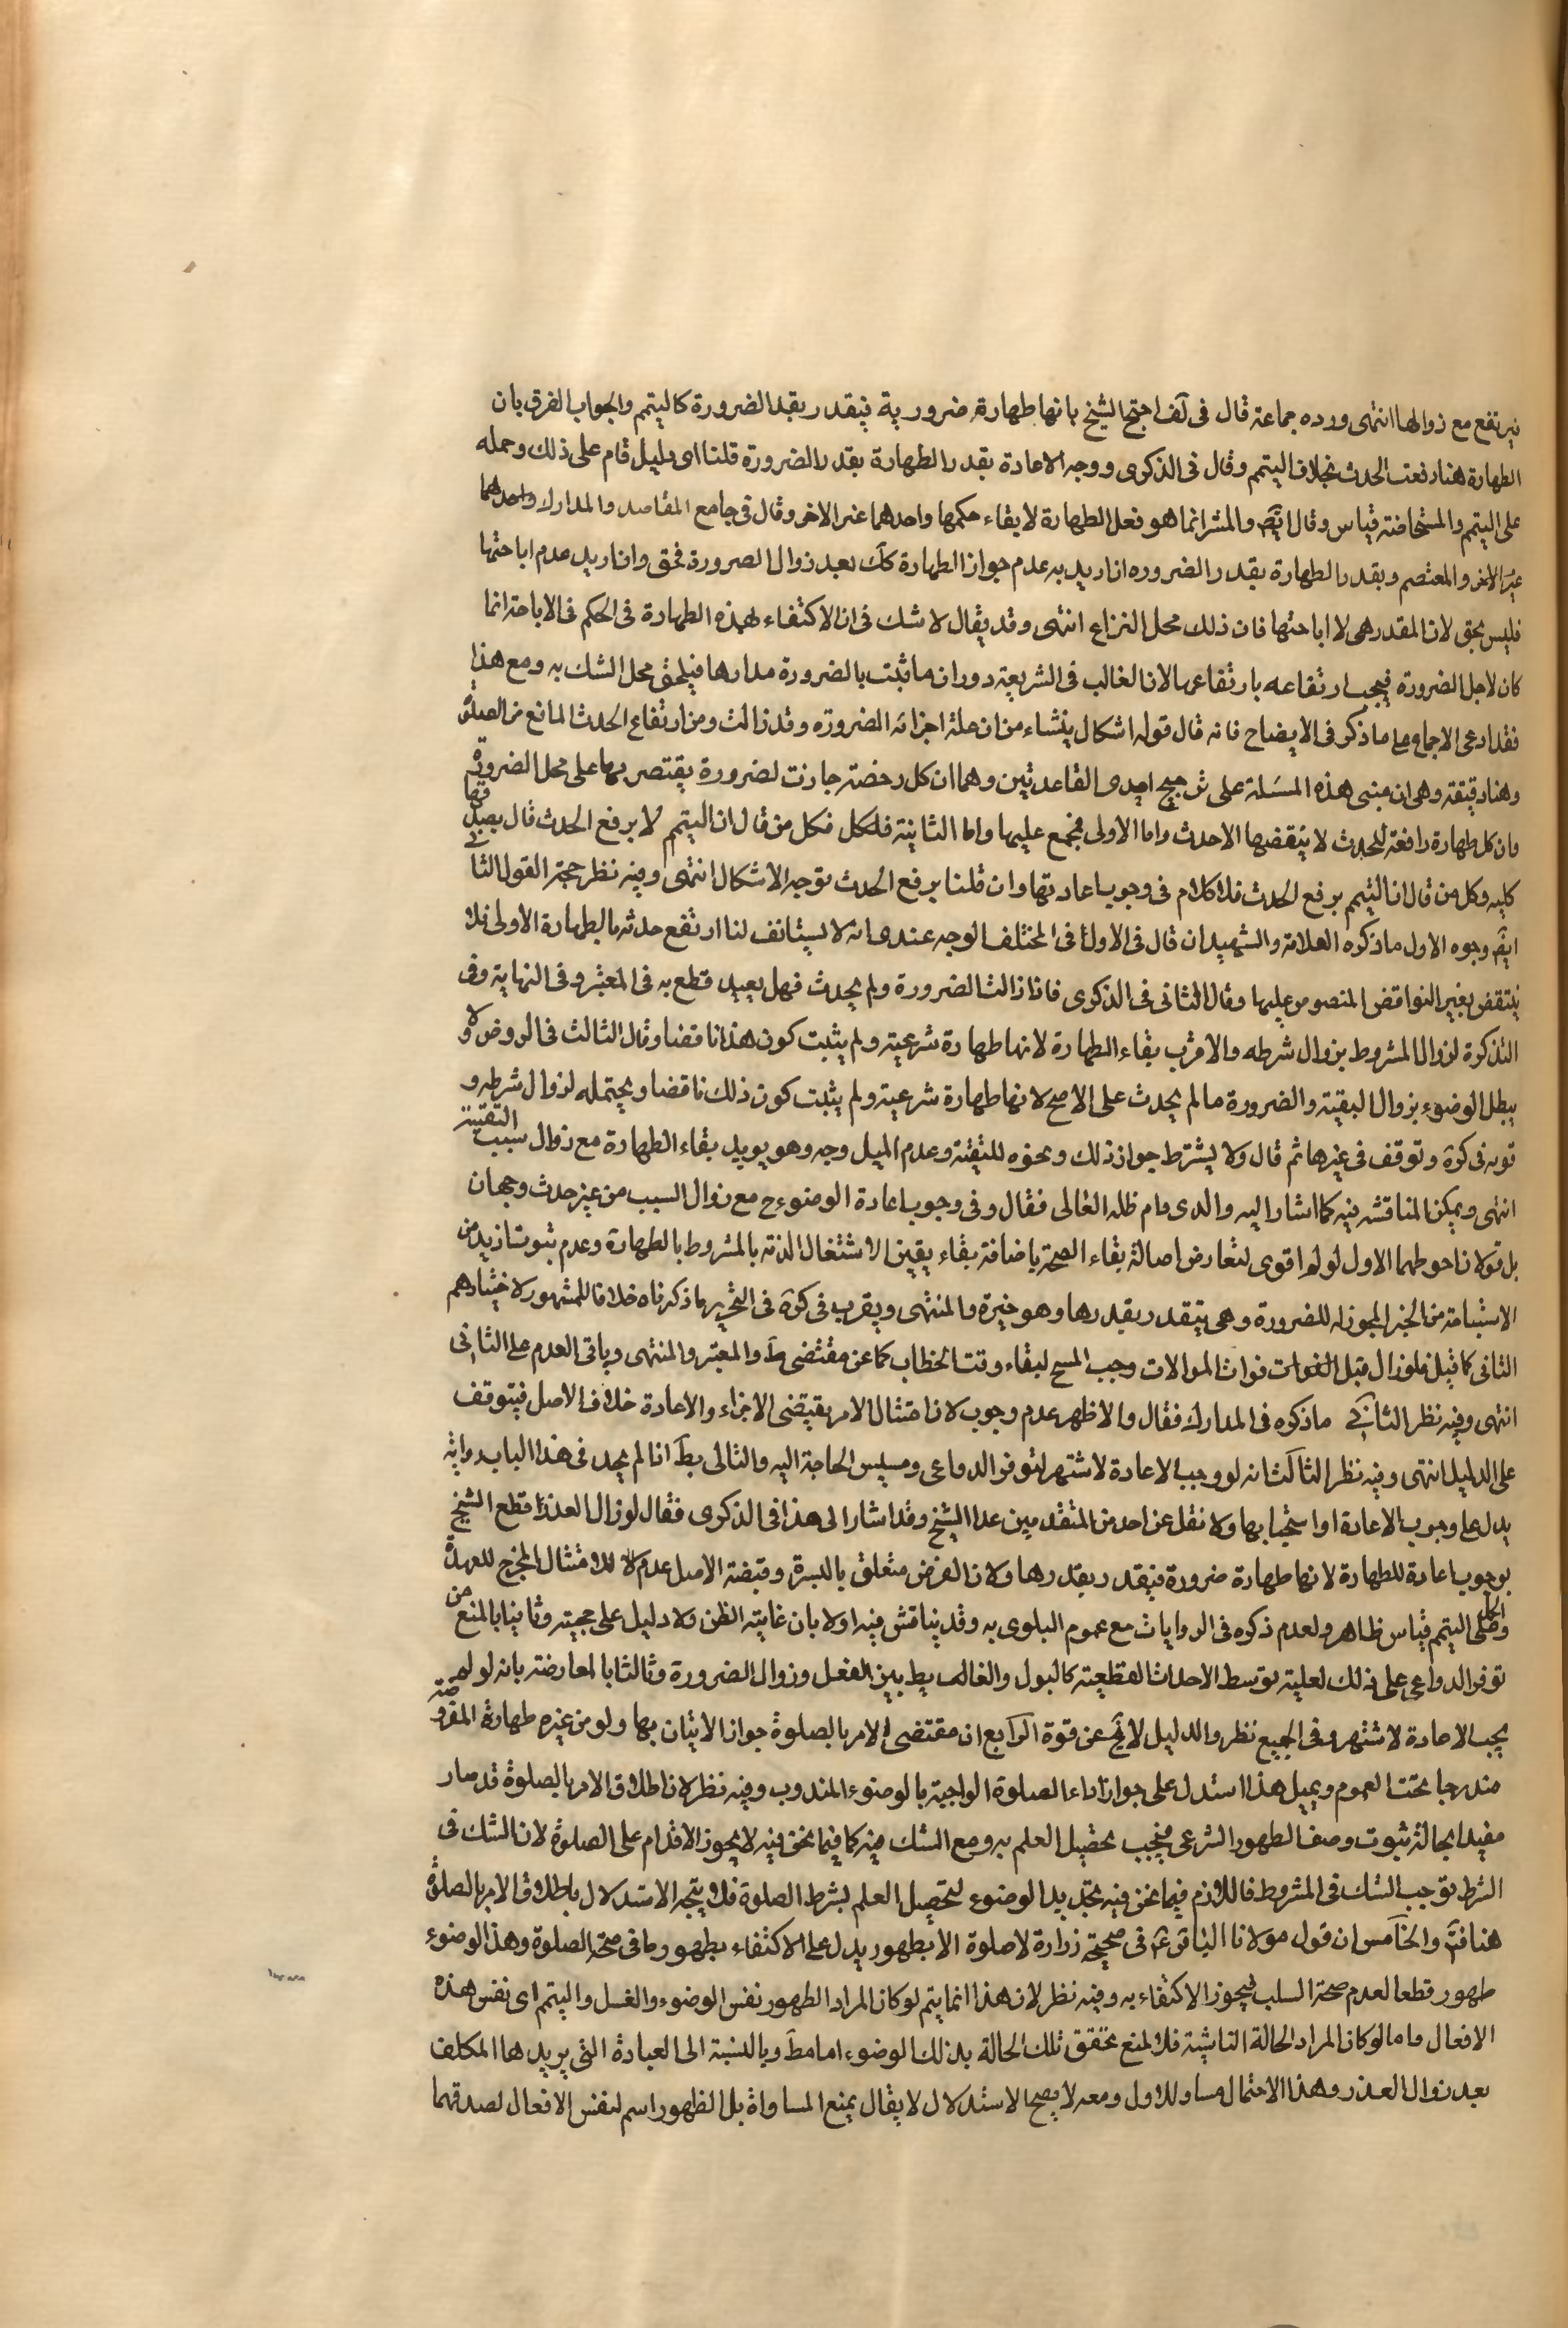 فيرتفع مع زوالها انتهى ورده جماعة قال فى لف احتج الشيخ بانها طهارة ضرورية فيقدر بقدر الضرورة كالتيمم والجواب الفرق بان
الطهارة هنا رفعت الحدث بخلاف التيمم وقال فى الذكرى ووجه الاعادة بقدر الطهارة بقدر الضرورة قلنا اى دليل قام على ذلك وحمله
على التيمم والمستحاضة قياس وقال ايض والمشر انما هو فعل الطهارة لا بقاء حكمها واحدهما غير الاخر وقال فى جامع المقاصد والمدارك واحدهما
غير الاخر والمعتصم وبقدر الطهارة بقدر الضروره ان اريد به عدم جواز الطهارة كك بعد زوال الضرورة فحق وان اريد عدم اباحتها
فليس بحق لان المقدر هى لا اباحتها فان ذلك محل النزاع انتهى وقد يقال لا شك فى ان الاكتفاء بهذه الطهارة فى الحكم فى الاباحة انما
كان لاجل الضرورة فيجب ارتفاعه بارتفاعها لان الغالب فى الشريعة دوران ما ثبت بالضرورة مدارها فيلحق محل الشك به ومع هذا
فقد ادعى الاجماع على ما ذكر فى الايضاح فانه قال قوله اشكال ينشاء من ان علة اجزائه الضرورة وقد زالت ومن ارتفاع الحدث المانع من الصلوة
وهنا دقيقة وهى ان مبنى هذه المسئلة على ترجيح احدى القاعدتين وهما ان كل رخصة جازت لضرورة يقتصر بها على محل الضرورة
وان كل طهارة رافعة للحدث لا ينقضها الا حدث واما الاولى فمجمع عليها واما الثانية فلكل فكل من قال ان التيمم لا يرفع الحدث قال بصدقها
كليه وكل من قال ان التيمم يرفع الحدث فلا كلام فى وجوب اعادتها وان قلنا يرفع الحدث توجه الاشكال انتهى وفيه نظر حجة القول الثانى
ايض وجوه الاول ما ذكره العلامة والشهيدان قال فى الاول فى المختلف الوجه عندى انه لا يستانف لنا ارتفع حدثه بالطهارة الاولى فلا
ينتقض بغير النواقض المنصوص عليها وقال الثانى فى الذكرى فاذا زالت الضرورة ولم يحدث فهل يعيد قطع به فى المعتبر وفى النهاية وفى
التذكرة لزوال المشروط بزوال شرطه والاقرب بقاء الطهارة لانها طهارة شرعية ولم يثبت كون هذا ناقضا وقال الثالث فى الروض ولا
يبطل الوضوء بزوال التقية والضرورة ما لم يحدث على الاصح لانها طهارة شرعية ولم يثبت كون ذلك ناقضا ويحتمله لزوال شرطه و
قربه فى كرة وتوقف فى غيرها ثم قال ولا يشترط جواز ذلك ونحوه للتقية وعدم الميل وجه وهو يويد بقاء الطهارة مع زوال سبب التقية
انتهى ويمكن المناقشة فيه كما اشار اليه والدى دام ظله العالى فقال وفى وجوب اعادة الوضوء ح مع زوال السبب من غير حدث وجهان
بل قولان احوطهما الاول لو لم اقوى لتعارض اصالة بقاء الصحة باضافة بقاء يقين الاشتغال الذمة بالمشروط بالطهارة وعدم ثبوت ازيد من
الاستباحة من الخبر المجوز له للضرورة وهى يتقدر بقدرها وهو خيرة والمنتهى ويقرب فى كرة فى التحرير ما ذكرناه خلافا للمشهور لاختيارهم
الثانى كما قيل فلو زال قبل الفوات فوات الموالات وجب المسح لبقاء وقت الخطاب كما عن مقتضى ط والمعتبر والمنتهى وياتى العدم على الثانى
انتهى وفيه نظر الثانى ما ذكره فى المدارك فقال والاظهر عدم وجوب لان امتثال الامر يقتضى الاجزاء والاعادة خلاف الاصل فيتوقف
على الدليل انتهى وفيه نظر الثالث انه لو وجب الاعادة لاشتهر لتوفر الدواعى ومسيس الحاجة اليه والتالى بط انا لم نجد فى هذا الباب رواية
يدل على وجوب الاعادة او استحبابها ولا نقل عن احد من المتقدمين عدا الشيخ وقد اشار الى هذا فى الذكرى فقال لو زال العذر قطع الشيخ
بوجوب اعادة للطهارة لانها طهارة ضرورة فيقدر بقدرها ولان الفرض متعلق بالبشرة وقبضة الاصل عدمه لان للامتثال المخرج للعهدة
والحمل على التيمم قياس ظاهر ولعدم ذكره فى الروايات مع عموم البلوى به وقد يناقش فيه اولا بان غايته الظن ولا دليل على حجيته وثانيا بالمنع من
توفر الدواعى على ذلك لعلية توسط الاحداث القطعية كالبول والغالب يط بين الفعل وزوال الضرورة وثالثا بالمعارضة بانه لو لم
يجب الاعادة لاشتهر وفى الجميع نظر والدليل لا يخ عن قوة الرابع ان مقتضى الامر بالصلوة جواز الاتيان بها ولو من غيره طهارة المفروضة
مندرجا تحت العموم وبميل هذا استدل على جواز اداء الصلوة الواجبة بالوضوء المندوب وفيه نظر لان اطلاق الامر بالصلوة قد صار
مقيدا بحالة ثبوت وصف الطهور الشرعى فيجب تحصيل العلم به ومع الشك فيه كما فيما نحن فيه لا يجوز الاقدام على الصلوة لان الشك فى
الشرط يوجب الشك فى المشروط فاللازم فيما نحن فيه تجديد الوضوء لتحصيل العلم بشرط الصلوة فلا يتجه الاستدلال باطلاق الامر بالصلوة
هنا فتم والخامس ان قول مولانا الباقر ع فى صحيحة زرارة لا صلوة الا بطهور يدل على الاكتفاء بطهور ما فى صحة الصلوة وهذا الوضوء
طهور قطعا لعدم صحة السلب فيجوز الاكتفاء به وفيه نظر لان هذا انما يتم لو كان المراد الطهور نفس الوضوء والغسل والتيمم اى نفس هذه
الافعال واما لو كان المراد الحالة الناشئة فلا لمنع تحقق تلك الحالة بذلك الوضوء اما مط وبالنسبة الى العبادة التى يريدها المكلف
بعد زوال العذر وهذا الاحتمال مساو للاول ومعه لا يصح الاستدلال لا يقال يمنع المساواة بل الطهور اسم لنفس الافعال لصدقهما